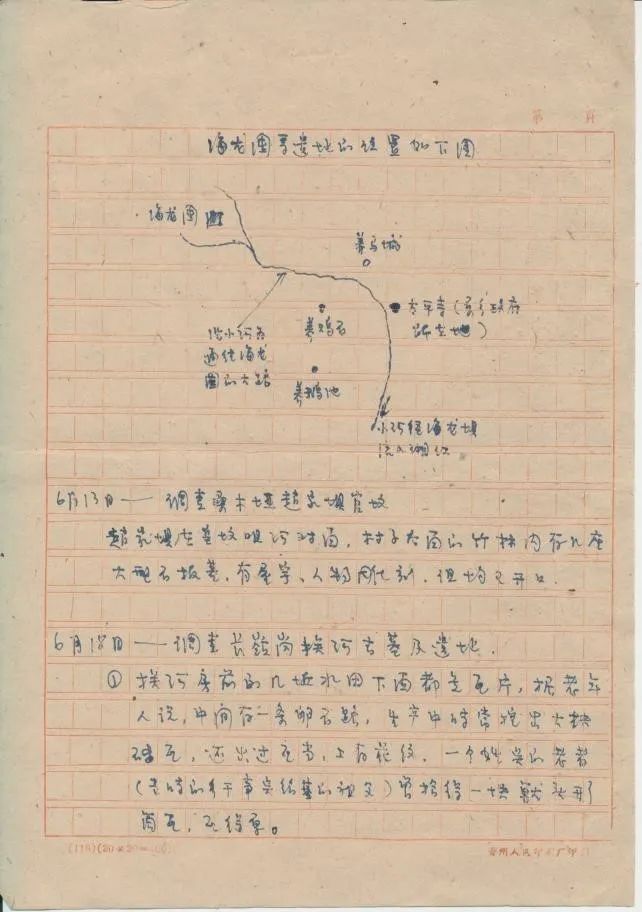 第 页
海龙囤等遗址的位置如下图
海龙囤
养马城
太平寺(乡政府
所在地)
养鸡石
沿小河为
通往海龙
囤的大路
养鹅池
小河经海龙坝
流入湘江
6月13日——调查桑木垭赵家坝官坟
赵家坝在皇坟咀河对面,村子大面的竹林内有几座
大型石板墓,有屋宇、人物雕刻,但均已开口.
6月18日——调查长岭岗挨河古墓及遗址.
① 挨河房前的几块水田下面都是瓦片,据老年
人说,中间有一条卵石路,生产中时常挖出大块
砖瓦,还出过瓦当,上有花纹.一个姓吴的老者
(当时的乡干事吴 的祖父)曾拾得一块兽头形
筒瓦,瓦 厚。
(119)(20×20=400)
贵州人民印刷厂印